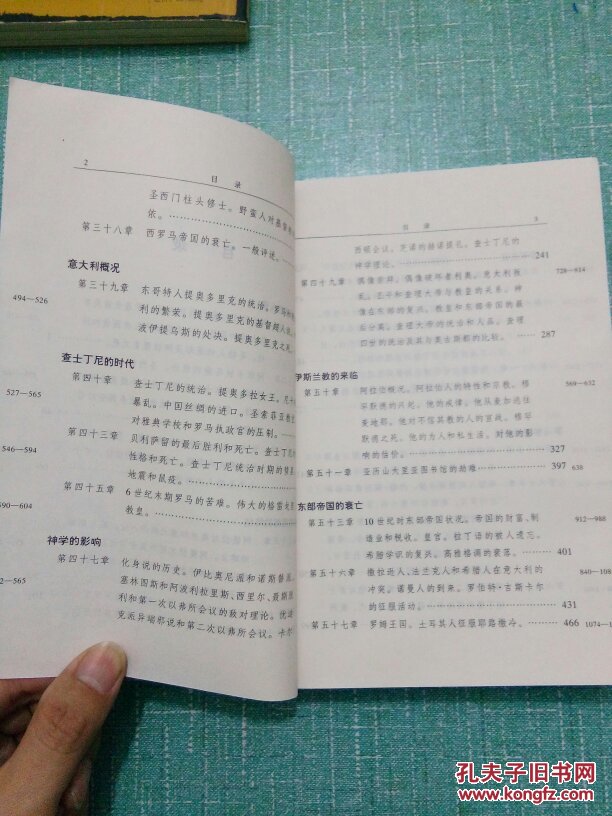 2
目 录
圣西门柱头修士。野蛮人对基督教
依。
第三十八章 西罗马帝国的衰亡。一般评述。
意大利概况
第三十九章 东哥特人提奥多里克的统治。罗马和
494—526
利的繁荣。提奥多里克的基督
波伊提乌斯的处决。提奥多里克之死。
查士丁尼的时代
第四十章 查士丁尼的统治。提奥多拉女王。尼卡
527—565
暴乱。中国丝绸的进口。圣索菲亚教
对雅典学校和罗马执政官的压制。
第四十三章 贝利萨留的最后胜利和死亡。查士丁尼
546—594
性格和死亡。查士丁尼统治时期的
地震和鼠疫。
第四十五章 6世纪末期罗马的苦难。伟大的格雷
590—604
教皇。
神学的影响
第四十七章 化身说的历史。伊比奥尼派和诺斯替派。
2—565
塞林图斯和阿波利拉里斯、西里尔、聂斯
利和第一次以弗所会议的敌对理论。优
克派异端邪说和第二次以弗所会议。卡尔
目 录
3
西顿会议。芝诺的赫诺提孔。查士丁尼的
神学理论。 241
第四十九章 偶像崇拜。偶像破坏者利奥。意大利叛
728—814
乱。丕平和查理大帝与教皇的关系。神
像在东部的复兴。教皇和东部帝国的最
后分离。查理大帝的统治和人品。查理
四世的统治及其与奥古斯都的比较。 287
伊斯兰教的来临
第五十章 阿拉伯概况。阿拉伯人的特性和宗教。穆
569—632
罕默德的兴起。他的戒律。他从麦加逃往
麦地那。他对不信其教的人的宣战。穆罕
默德之死。他的为人和私生活。对他的影
响的估价。 327
第五十一章 亚历山大里亚图书馆的劫难 397
638
东部帝国的衰亡
第五十三章 10世纪对东部帝国状况。帝国的财富、制
912—988
造业和税收。皇宫。拉丁语的被人遗忘。
希腊学识的复兴。高雅格调的衰落。 401
第五十六章 撒拉逊人、法兰克人和希腊人在意大利的
840—108
冲突。诺曼人的到来。罗伯特·吉斯卡尔
的征服活动。 431
第五十七章 罗姆王国。土耳其人征服耶路撒冷。 466
1074—1
孔夫子旧书网
www.kongfz.com